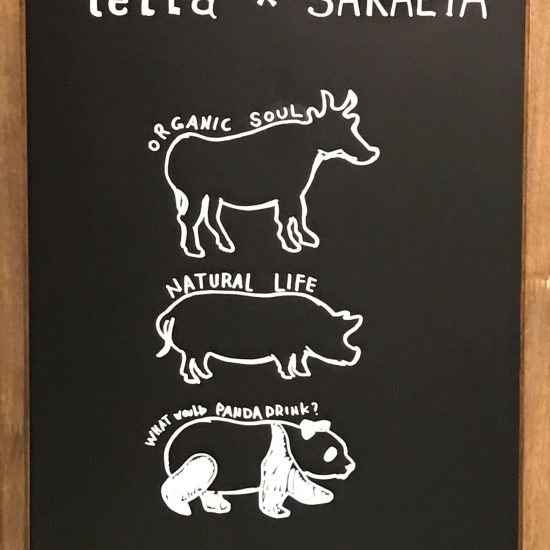 terra × SAKAEYA
ORGANIC SOUL
NATURAL LIFE
WHAT would PANDA DRINK?